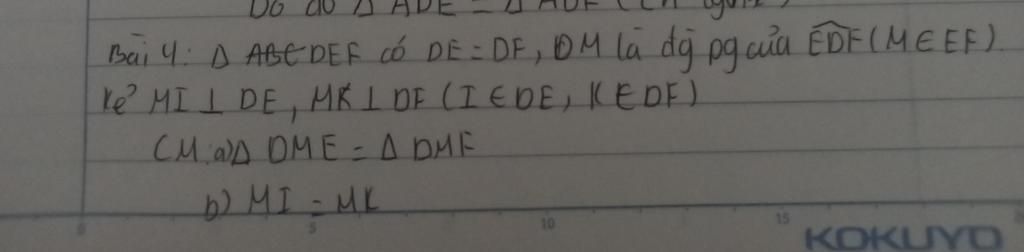 Do đó Δ ADE = Δ ADF (
Bài 4: Δ ABC DEF có DE = DF, DM là đg pg của EDF (M ∈ EF)
Kẻ MI ⊥ DE, MK ⊥ DF (I ∈ DE, K ∈ DF)
CM a) Δ DME = Δ DMF
b) MI = MK
0 5 10 15
KOKUYO